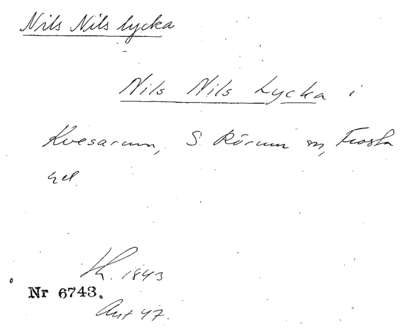 Nils Nils lycka
Nils Nils Lycka i
Kvesarum, S. Rörum sn, Frosta
hd.
1843
Nr 6743.
Ant 47.